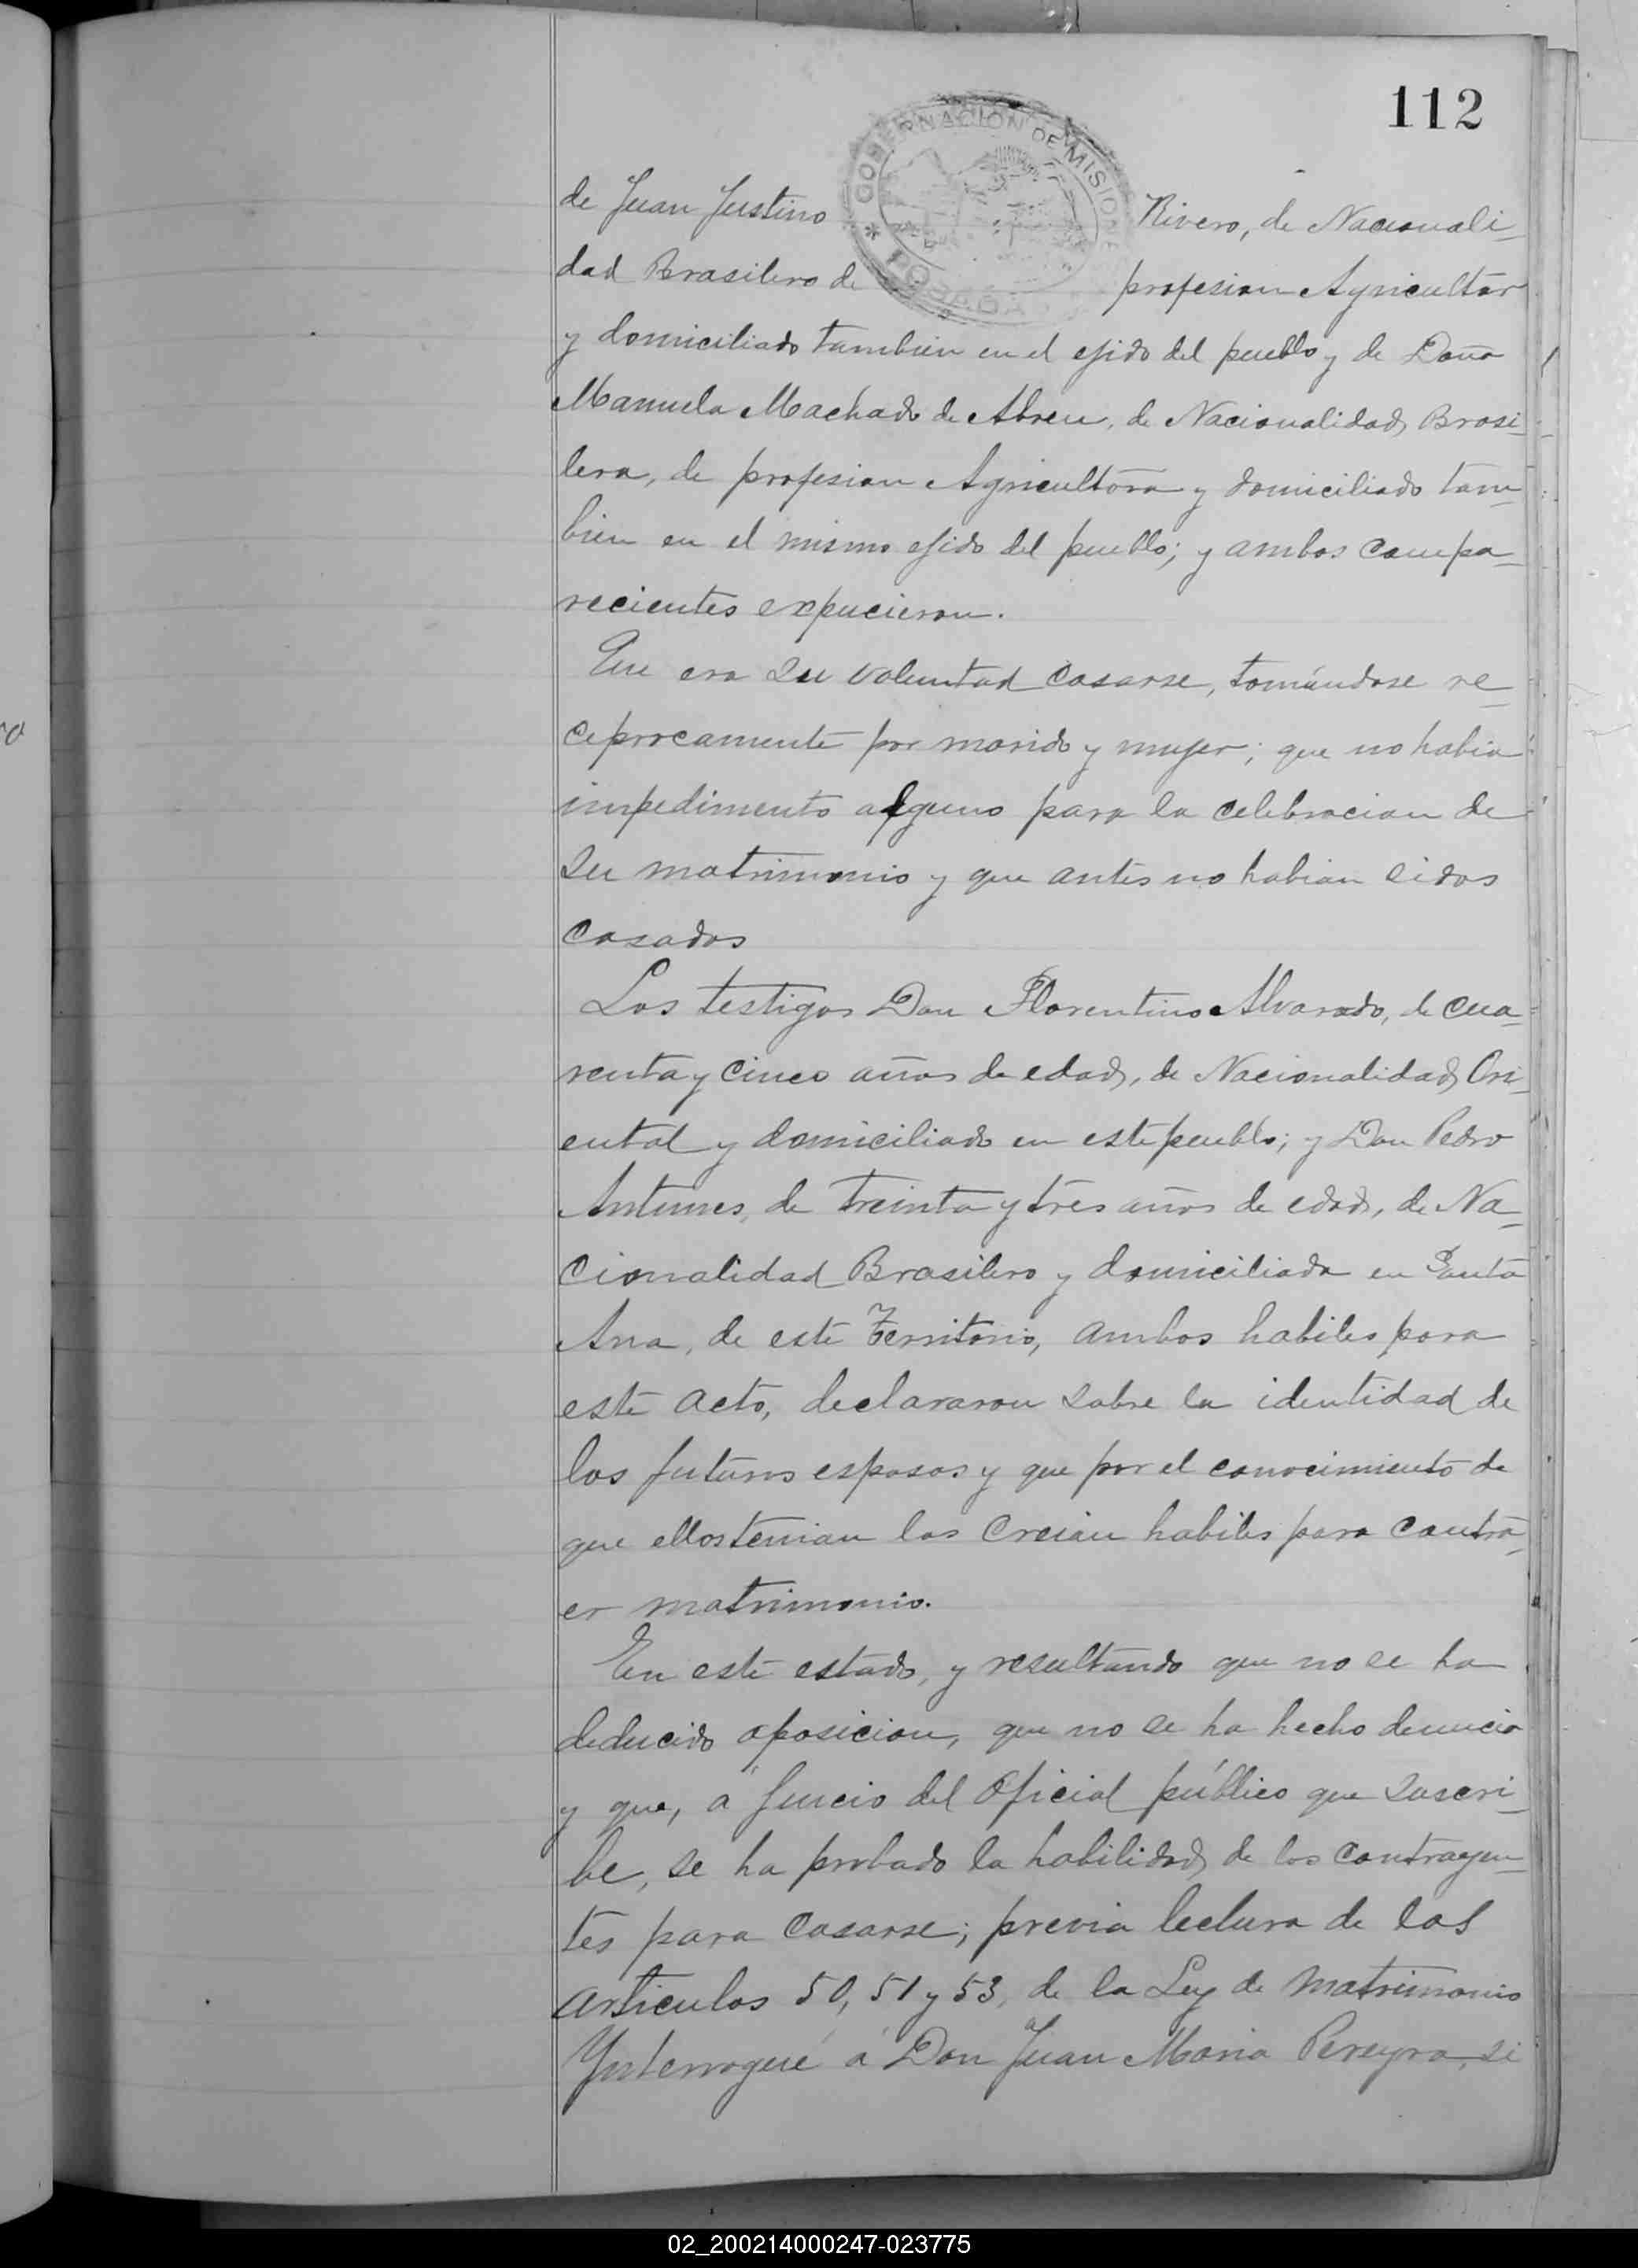 112
GOBERNACION DE MISIONES
* POSADAS
de Juan Justino Rivero, de Nacionali_
dad Brasilero de profesion Agricultor
y domiciliado tambien en el ejido del pueblo y de Doña
Manuela Machado de Abreu, de Nacionalidad Brasi_
lera, de profesion Agricultora y domiciliado tam_
bien en el mismo ejido del pueblo; y ambos compa_
recientes expucieron.
Que era su voluntad casarse, tomándose re_
ceprocamente por marido y mujer; que no habia
impedimento alguno para la celebracion de
su matrimonio y que antes no habian sidos
casados
Los testigos Don Florentino Alvarado, de cua_
renta y cinco años de edad, de Nacionalidad Ori_
ental y domiciliado en este pueblo; y Don Pedro
Antunes, de treinta y tres años de edad, de Na_
cionalidad Brasilero y domiciliado en Santa
Ana, de este Territorio, ambos habiles para
este acto, declararon sobre la identidad de
los futuros esposos y que por el conocimiento de
que ellos tenian los creian habiles para contra_
er matrimonio.
En este estado, y resultando que no se ha
deducido oposicion, que no se ha hecho denucia
y que, á juicio del oficial público que suscri_
be, se ha probado la habilidad de los contrayen_
tes para casarse; previa lectura de los
articulos 50, 51 y 53, de la Ley de Matrimonio
Ynterrogué á Don Juan Maria Pereyra, si
02_200214000247-023775